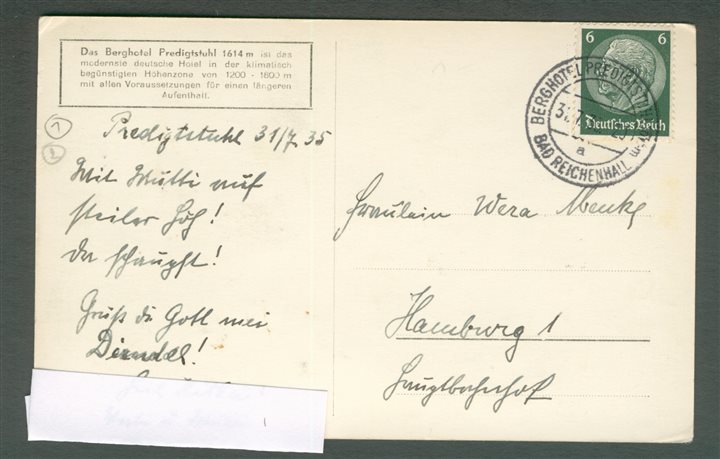 Das Berghotel Predigtstuhl 1614 m ist das
modernste deutsche Hotel in der klimatisch
begünstigten Höhenzone von 1200 - 1600 m
mit allen Voraussetzungen für einen längeren
Aufenthalt.
1
2
Predigtstuhl 31/7 35
Mit Mutti auf
steiler Höh!
da schaugst!
Grüß di Gott mei
Dirndel!
6 6
Deutsches Reich
BERGHOTEL PREDIGTSTUHL
31.7.
a
BAD REICHENHALL
Fräulein Wera Menke
Hamburg 1
Hauptbahnhof